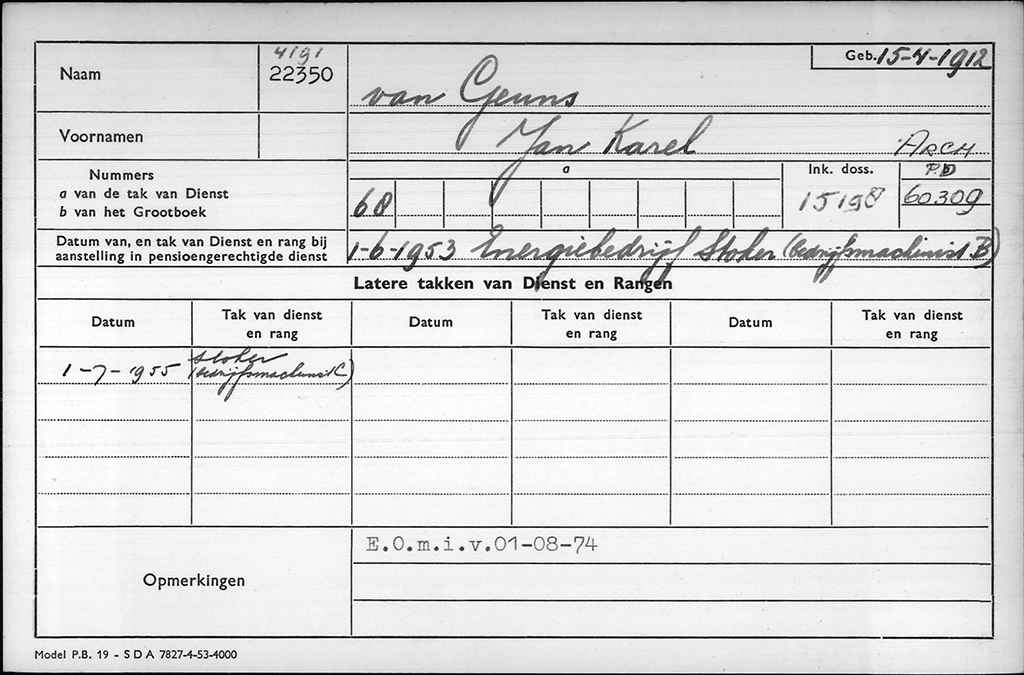 4191
Naam 22350 van Geuns Geb. 15-4-1912
Voornamen Jan Karel ARCH
Nummers a Ink. doss. P.D
a van de tak van Dienst
b van het Grootboek 68 15198 60309
Datum van, en tak van Dienst en rang bij
aanstelling in pensioengerechtigde dienst 1-6-1953 Energiebedrijf Stoker (bedrijfsmachinist B)
Latere takken van Dienst en Rangen
Datum Tak van dienst en rang Datum Tak van dienst en rang Datum Tak van dienst en rang
1-7-1955 Stoker
(bedrijfsmachinist C)
Opmerkingen E.O.m.i.v.01-08-74
Model P.B. 19 - S D A 7827-4-53-4000